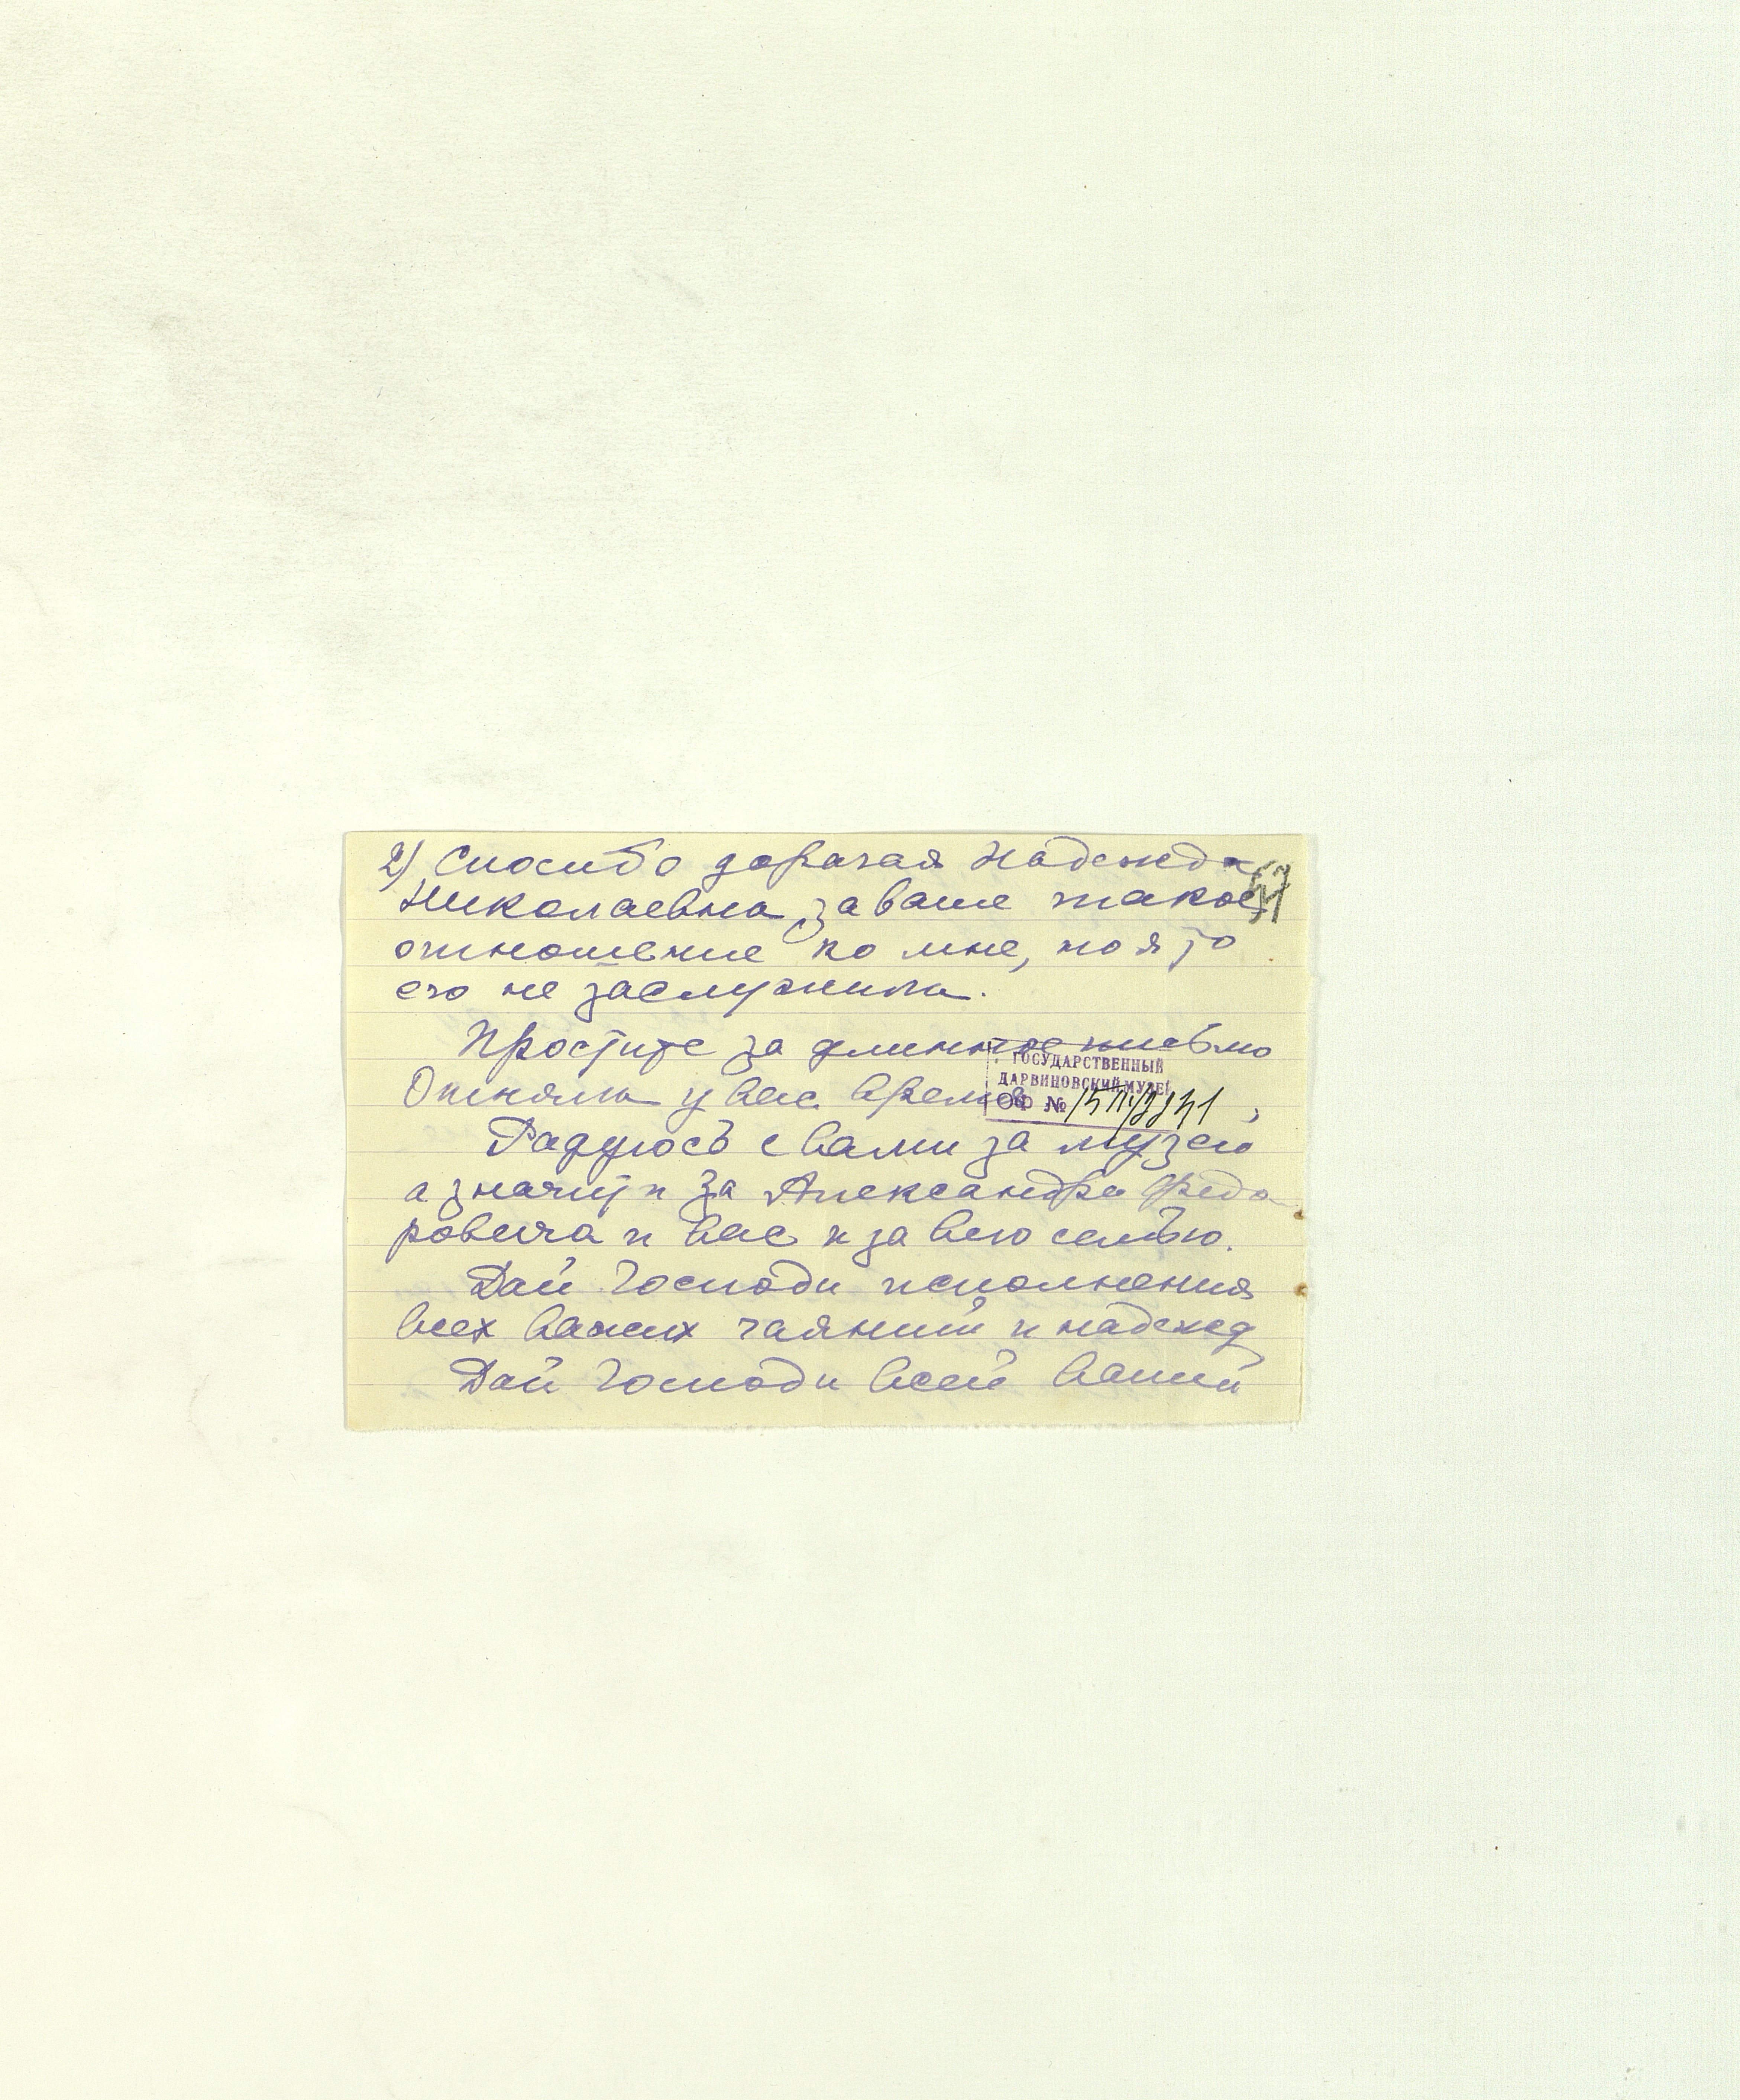 2) Спосибо дорагая Надежда
Николаевна за ваше такое
отношение ко мне, но я то
его не заслужила.
Простите за длинное письмо
Отняла у вас время
ГОСУДАРСТВЕННЫЙ
ДАРВИНОВСКИЙ МУЗЕЙ
ОФ №
Радуюсь с вами за музей
а значит и за Александра Федо
ровича и вас и за всю семью.
Дай Господи исполнения
всех ваших чаяний и надежд
Дай Господи всей вашей